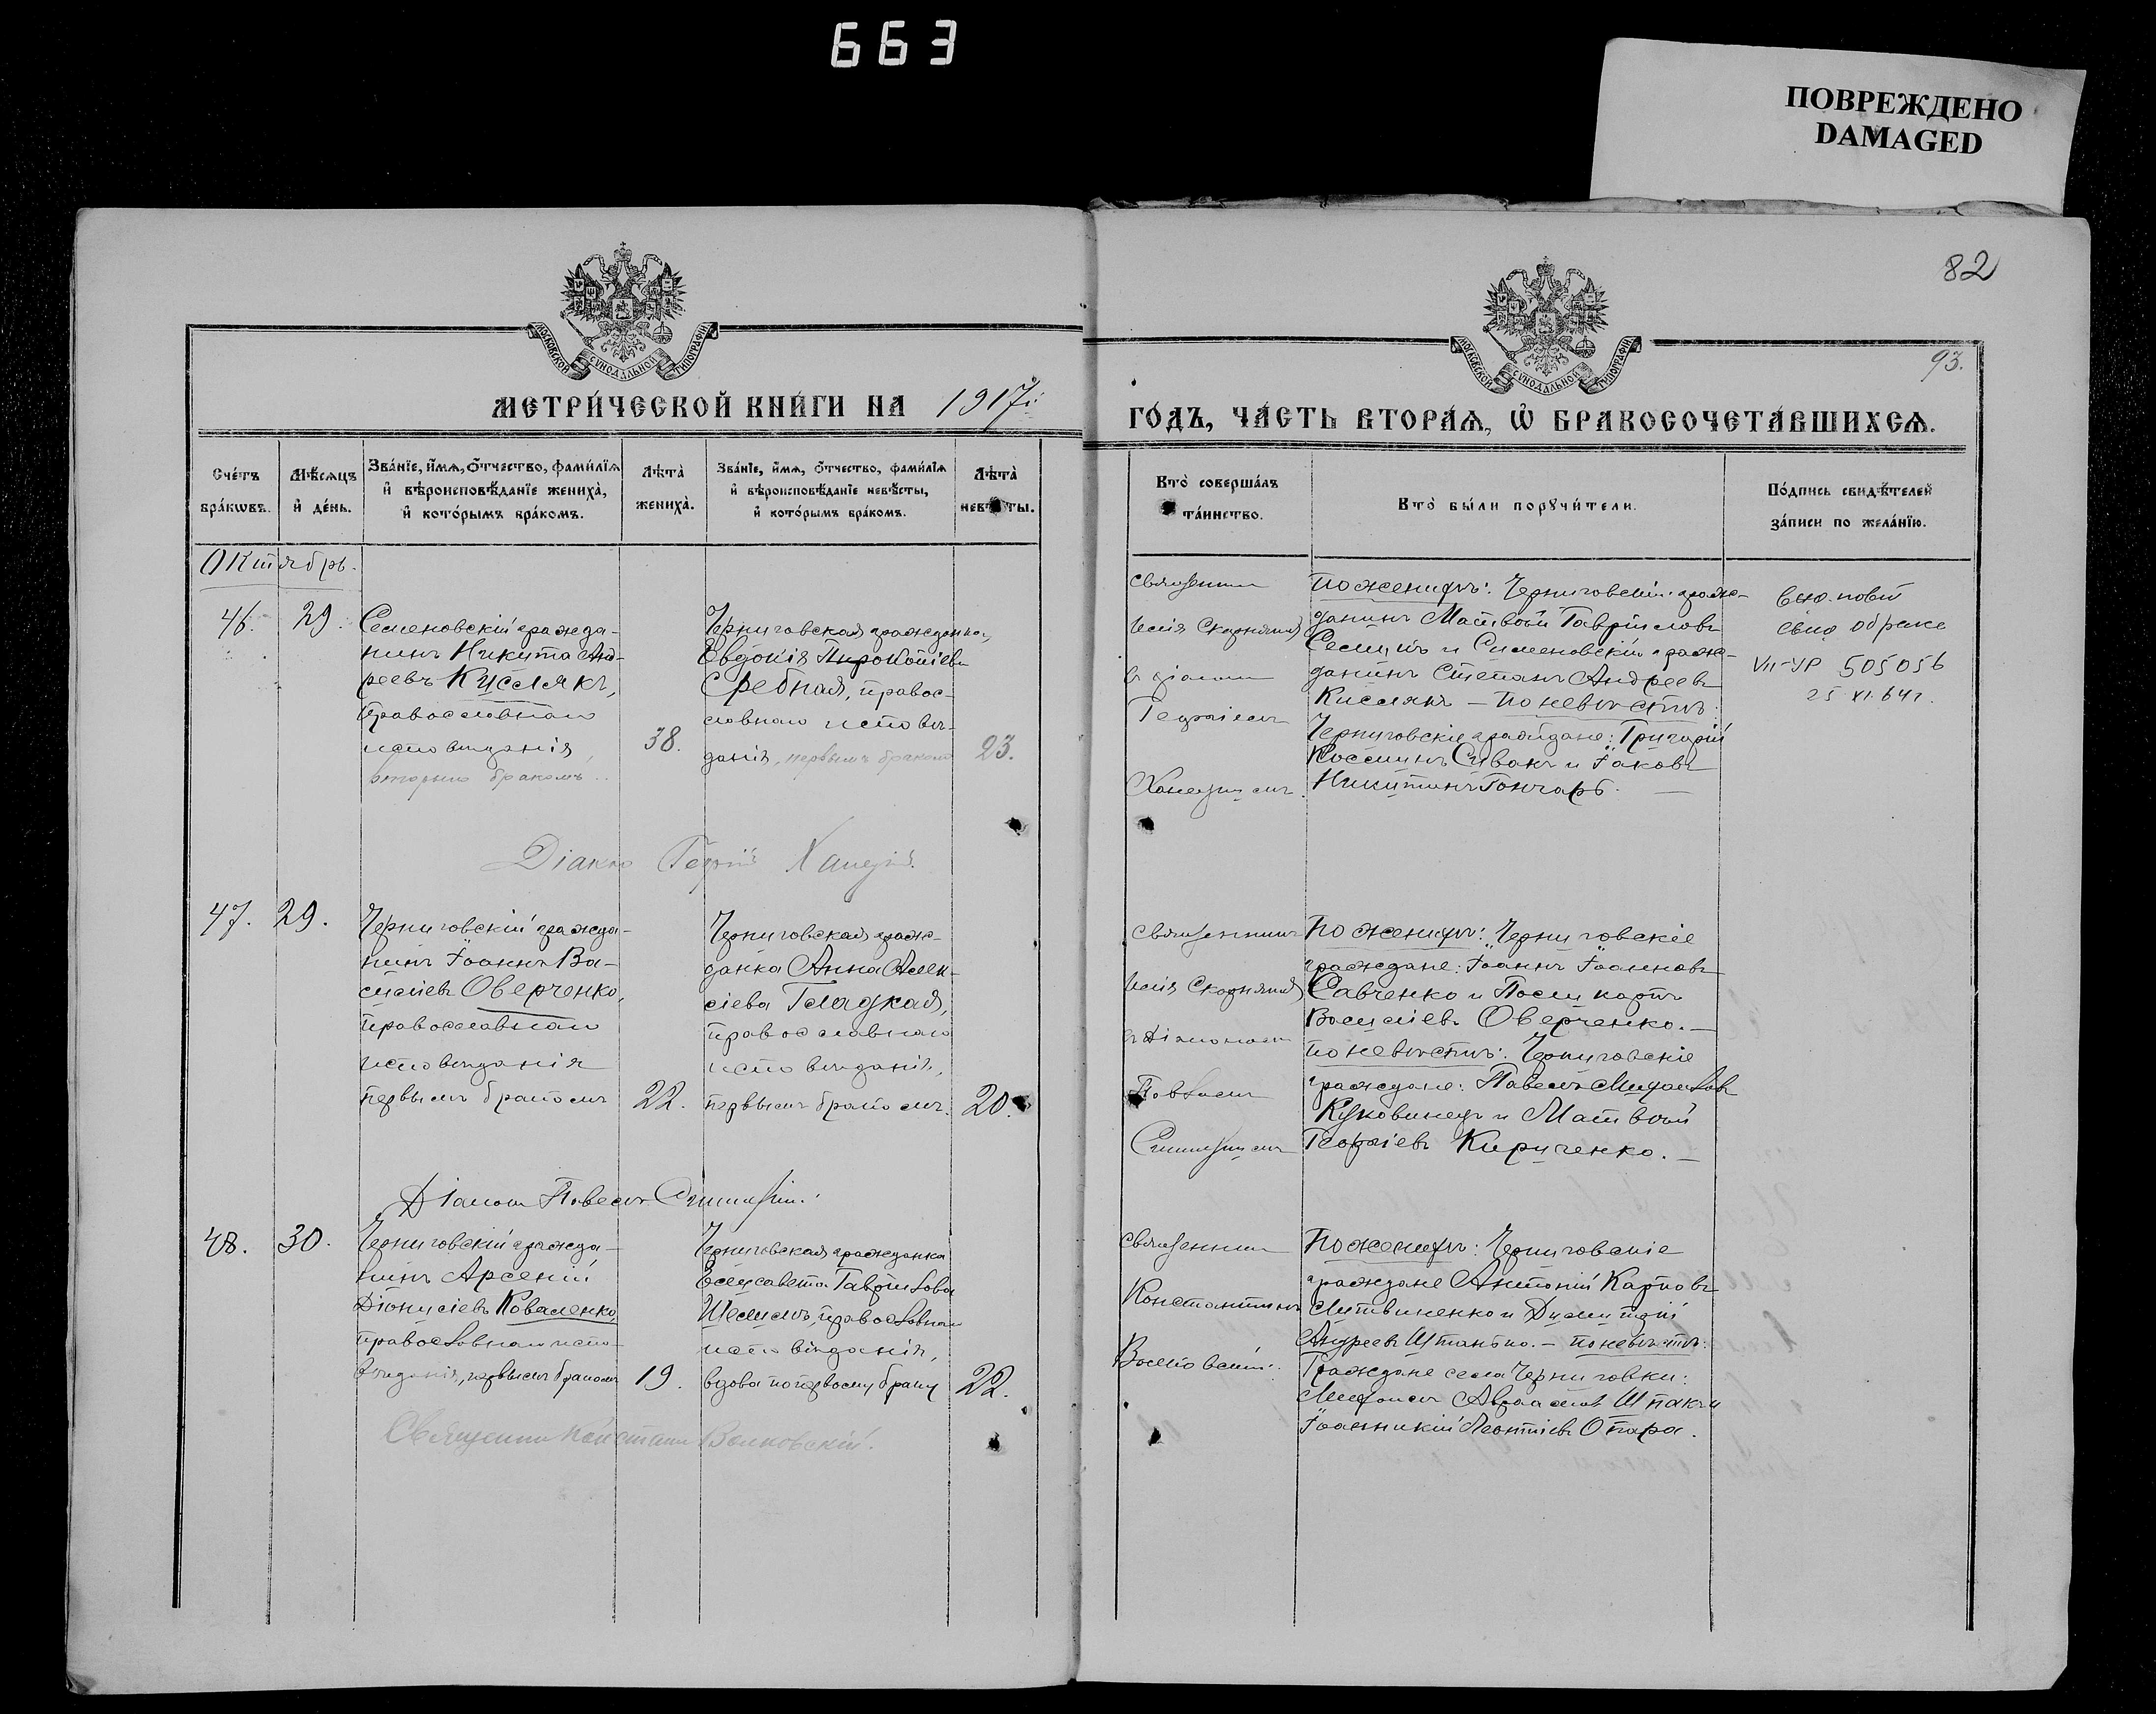 663
ПОВРЕЖДЕНО
DAMAGED
82
93.
МОСКОВСКОЙ СѴНОДАЛЬНОЙ ТИПОГРАФІИ
МОСКОВСКОЙ СѴНОДАЛЬНОЙ ТИПОГРАФІИ
МЕТРИ́ЧЕСКОЙ КНИ́ГИ НА 1917
ГО́ДЪ, ЧА́СТЬ ВТОРА́Ѧ, Ѡ҆ БРАКОСОЧЕТА́ВШИХСѦ.
Сче́тъ бра́кѡвъ.
Мѣ́сѧцъ и҆ де́нь.
Зва́нїе, и҆́мѧ, ѻ҆́тчество, фами́лїѧ и҆ вѣроисповѣ́данїе жениха̀, и҆ кото́рымъ бра́комъ.
Лѣта̀ жениха̀.
Зва́нїе, и҆́мѧ, ѻ҆́тчество, фами́лїѧ и҆ вѣроисповѣ́данїе невѣ́сты, и҆ кото́рымъ бра́комъ.
Лѣта̀ невѣ́сты.
Кто̀ соверша́лъ та́инство.
Кто̀ бы́ли порꙋчи́тели.
По́дпись свидѣ́телей за́писи по жела́нїю.
Октябрь.
46.
29.
Семеновскій гражда-
нинъ Никита Анд-
реевъ Кислякъ,
православнаго
исповѣданія,
вторымъ бракомъ.
38.
Черниговская гражданка
Евдокія Прокопіева
Сребная, правос-
лавнаго исповѣ-
данія, первымъ бракомъ
23.
Священник
Исаія Скорняков
с діакон
Георгіемъ
По женихѣ: Черниговскій граж-
данинъ Матвѣй Гавриловъ
и Семеновскій граж-
данинъ Стефанъ Андреевъ
Кислякъ — По невѣстѣ:
Черниговскіе граждане: Григорій
Космин Сивакъ и Іаковъ
Никитинъ Гончаръ. —
пов
свид о браке
VII-УР 505056
25 XI. 64г.
Діакон Георгій
47.
29.
Черниговскій гражда-
нинъ Іоаннъ Ва-
силіевъ Оверченко,
православнаго
исповѣданія
первымъ бракомъ
22.
Черниговская граж-
данка Анна Алек-
сіева Гладкая,
православнаго
исповѣданія,
первымъ бракомъ.
20.
Священникъ
Исаія Скорняков
с діакономъ
Павломъ
По женихѣ: Черниговскіе
граждане: Іоаннъ Іоанновъ
Савченко и Поликарпъ
Василіевъ Оверченко. —
По невѣстѣ: Черниговскіе
граждане: Павелъ Михаиловъ
Куковинецъ и Матвѣй
Георгіевъ Кириченко. —
Діакон Павелъ
48.
30.
Черниговскій гражда-
нинъ Арсеній
Діонисіевъ Коваленко,
православнаго испо-
вѣданія, первымъ бракомъ
19.
Черниговская гражданка
Елисавета Гаврилова
православнаго
исповѣданія,
вдова по первому браку
22.
Священник
Константинъ
По женихѣ: Черниговскіе
граждане Антоній Карповъ
Литвиненко и Димитрій
Андреевъ Штанько. — По невѣстѣ:
Граждане села Черниговки:
Аврамовъ Шпакъ и
Іоанникій Леонтіевъ Опара.
Священник Константин Волковскій.